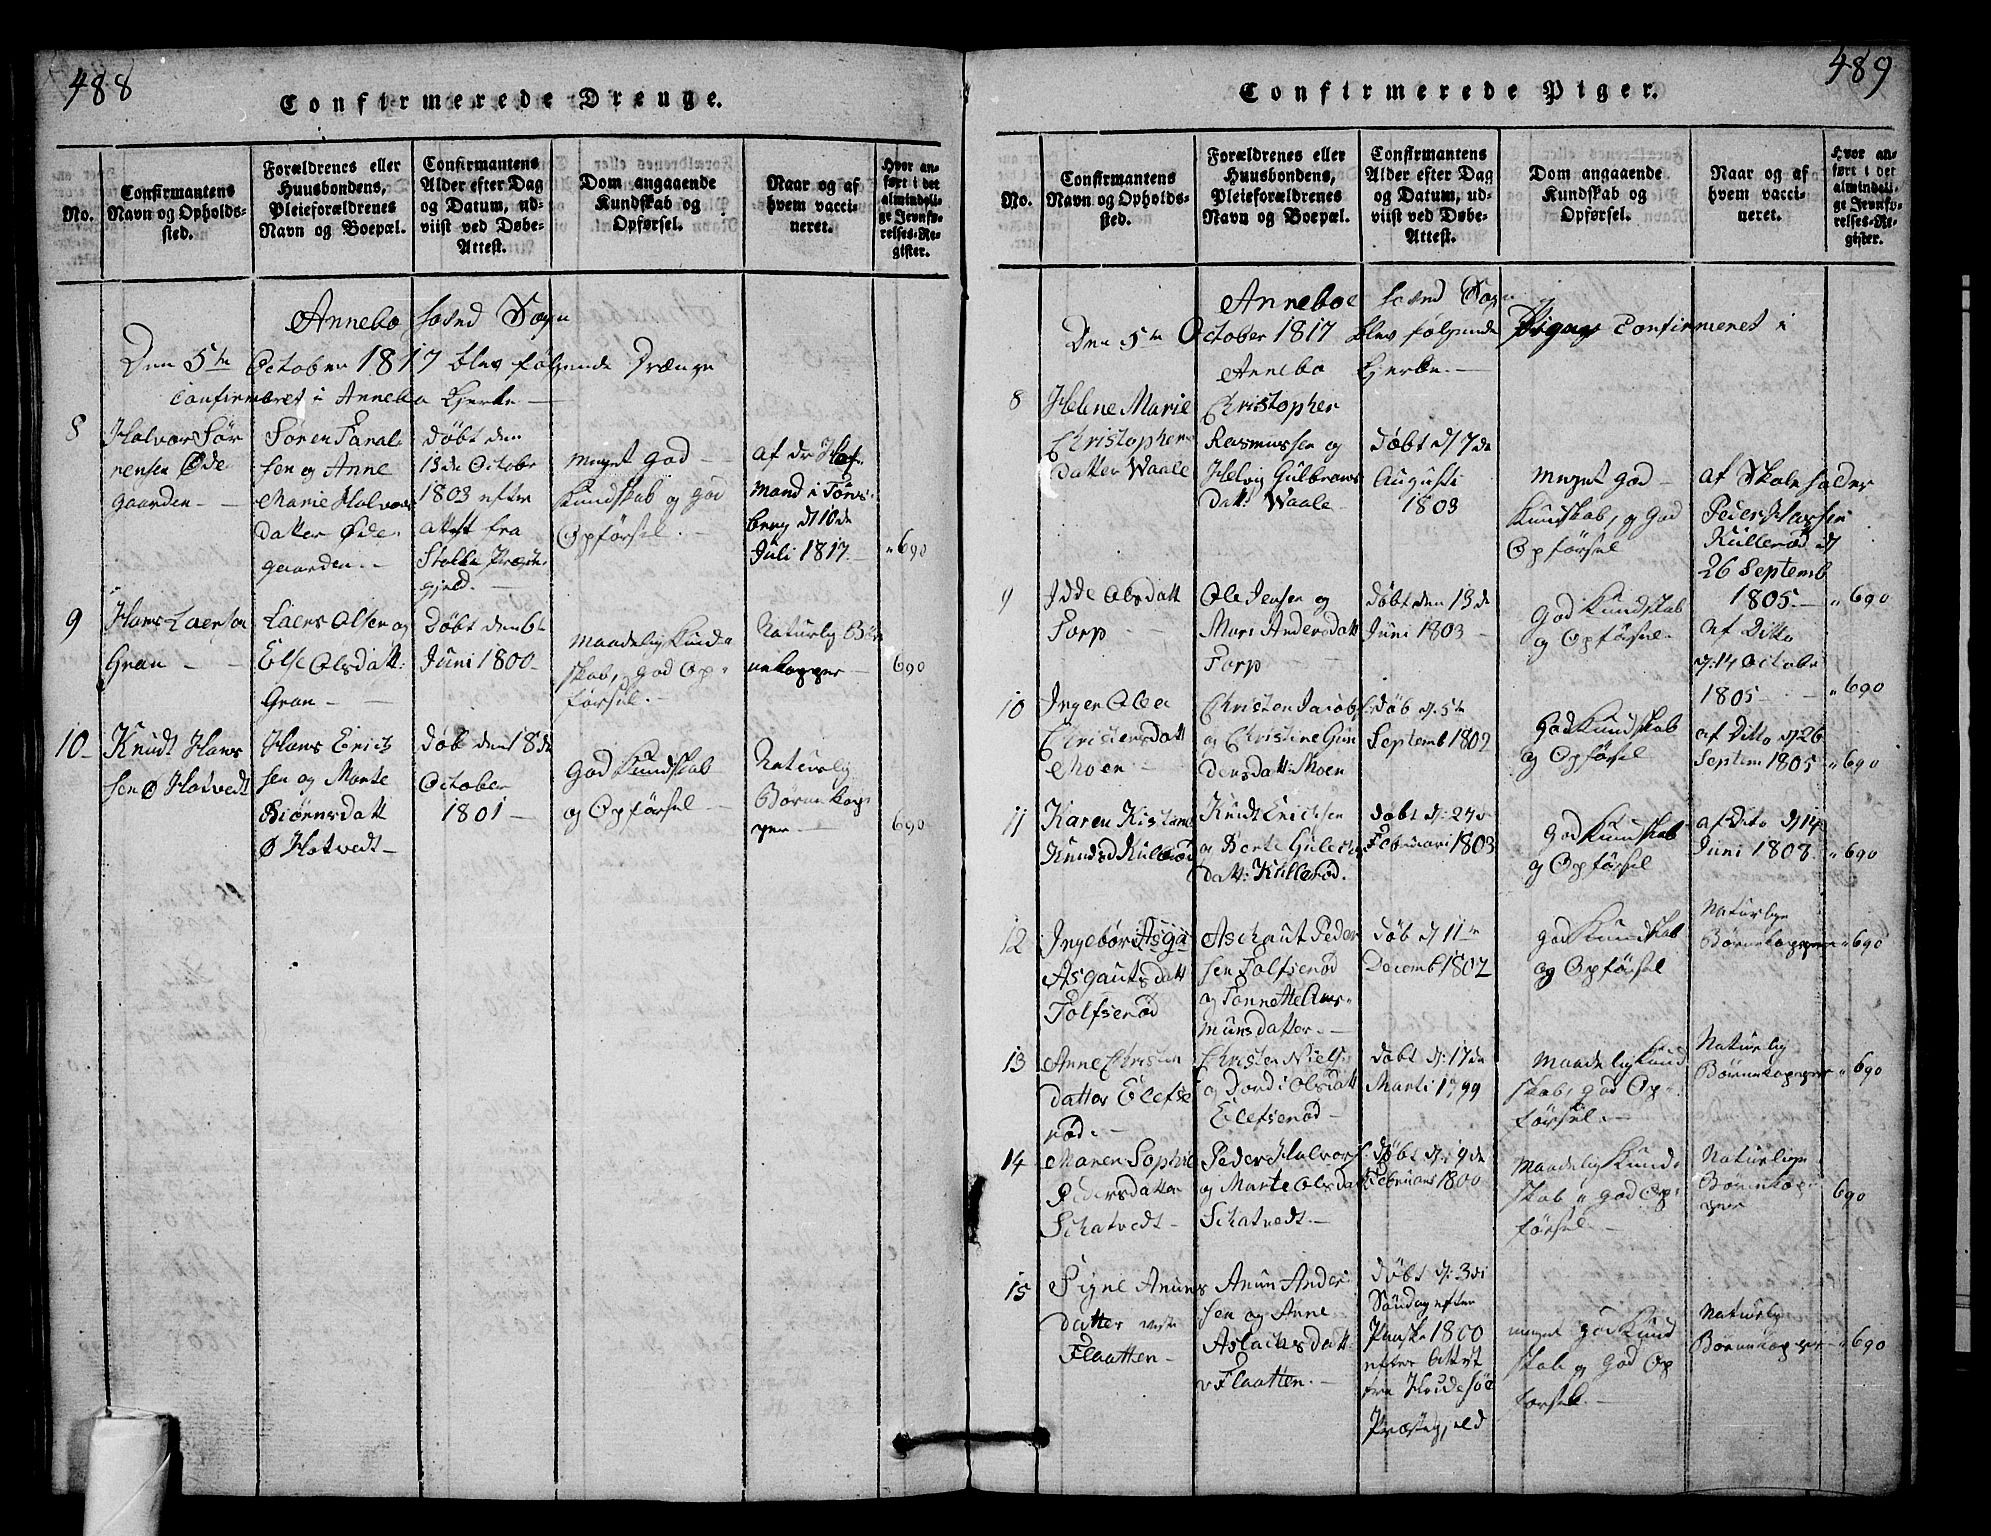 488
Confirmerede Drenge.
No.
Confirmantens
Navn og Opholds-
sted.
Forældrenes eller
Huusbondens,
Pleieforældrenes
Navn og Boepæl.
Confirmantens
Alder efter Dag
og Datum, ud-
viist ved Døbe-
Attest.
Dom angaaende
Kundskab og
Opførsel.
Naar og af
hvem vacci-
neret.
Hvor an-
ført i det
almindeli-
ge Jevnfø-
relses-Re-
gister.
Annebo Sogn
Den 5te October 1817 blev følgende Drænge
Confirmeret i Annebo Kjerke.
8
Halvor Sør
rensen Øde
gaarden
Søren Taral
sen og Anne
Marie Halvors
datter Øde
gaarden.
Døbt den
13de October
1803 efter
attest fra
Stokke Præste
gjeld.
meget god
Kundskab og god
Opførsel.
af dr Hof-
mand i Tøns-
berg d 10de
Juli 1817.
690
9
Hans Laersen
Gran
Laers Olsen og
Else Olsdatt:
Gran
Døbt den 6te
Juni 1800
maadelig Kund-
skab, god Op-
førsel.
Naturlig Bør
nekopper
690
10
Knudt Hans
sen Ø Hotvedt
Hans Erich
sen og Marte
Biørnsdatt
Ø Hotvedt
Døb den 18de
October
1801
God Kundskab
og Opførsel
Naturlig
Børnekop
per
690
489
Confirmerede Piger.
No.
Confirmantens
Navn og Opholds-
sted.
Forældrenes eller
Huusbondens,
Pleieforældrenes
Navn og Boepæl.
Confirmantens
Alder efter Dag
og Datum, ud-
viist ved Døbe-
Attest.
Dom angaaende
Kundskab og
Opførsel.
Naar og af
hvem vacci-
neret.
Hvor an-
ført i det
almindeli-
ge Jevnfø-
relses-Re-
gister.
Anneboe Sogn
Den 5te October 1817 blev følgende Piger Confirmeret i
Annebo Kjerke.
8
Helene Marie
Christophers
datter Waale
Christopher
Rasmussen og
Helvig Gulbrans
datt: Waale
Døbt d 7de
Augusti
1803
Meget god
Kundskab, og God
Opførsel
af Skoleholder
Peder Hansen
Kullerød d
26 Septemb
1805.
690
9
Idde Olsdatt
Torp
Ole Jensen og
Mari Andersdatt
Torp
Døbt den 13de
Juni 1803
God Kundskab
og Opførsel.
af Ditto
d: 14 Octobr
1805
690
10
Inger Olea
Christensdatt
Moen
Christen Jacobs
og Christine Gun
dersdatt: Moen
Døb d. 5te
Septemb 1802
God Kundskab
og Opførsel
af Ditto d 26
Septem 1805
690
11
Karen Kistine
Knudsd Kullerød
Knudt Erichsen
og Berte Gulichs
datt: Kullerød.
Døbt d: 27de
Februari 1803
God Kundskab
og Opførsel
af Dito d 14
Juni 1808.
690
12
Ingebør Asga
Asgautsdatt
Tolfserød
Aschaut Peder
sen Tolfserød
og Tonnette Am-
munsdatter.
Døb d 11te
Decemb 1802
God Kundskab
og Opførsel
Naturlige
Børnekopper
690
13
Anne Christen
datter Elefse
rød.
Christen Niels
og Dordi Olsdatt
Elefserød
Døbt d: 17de
Marti 1799
Maadelig Kund
skab, god Op-
førsel.
Naturlig
Børnekopper
690
14
Maren Sophie
Pedersdatter
Schatvedt
Peder Halvors
og Marte Olsdatt
Schatvedt.
Døbt d: 9de
Februari 1800
Maadelig Kund-
skab god Op-
førsel.
Naturlige
Børnekop
per
690
15
Signe Anuns
datter vestr
Flaatten
Anun Ander
sen og Anne
Aslachsdatt
v Flaatten.
Døbt d: 3di
Søndag efter
Paaske 1800
efter Attest
fra Præstegjeld
meget god Kund
skab og God Op
førsel.
Naturlig
Børnekopper
690